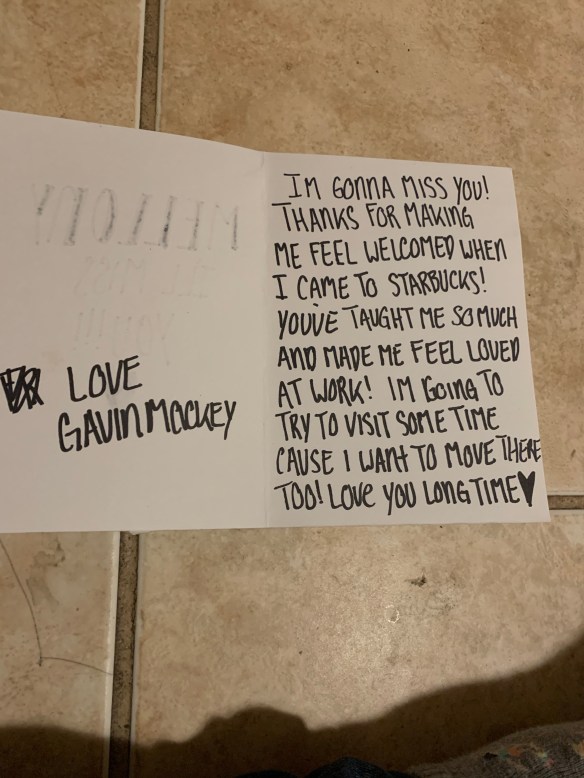 LOVE
GAVIN MOCKEY
IM GONNA MISS YOU!
THANKS FOR MAKING
ME FEEL WELCOMED WHEN
I CAME TO STARBUCKS!
YOU'VE TAUGHT ME SO MUCH
AND MADE ME FEEL LOVED
AT WORK! IM GOING TO
TRY TO VISIT SOME TIME
CAUSE I WANT TO MOVE THERE
TOO! LOVE YOU LONG TIME♥